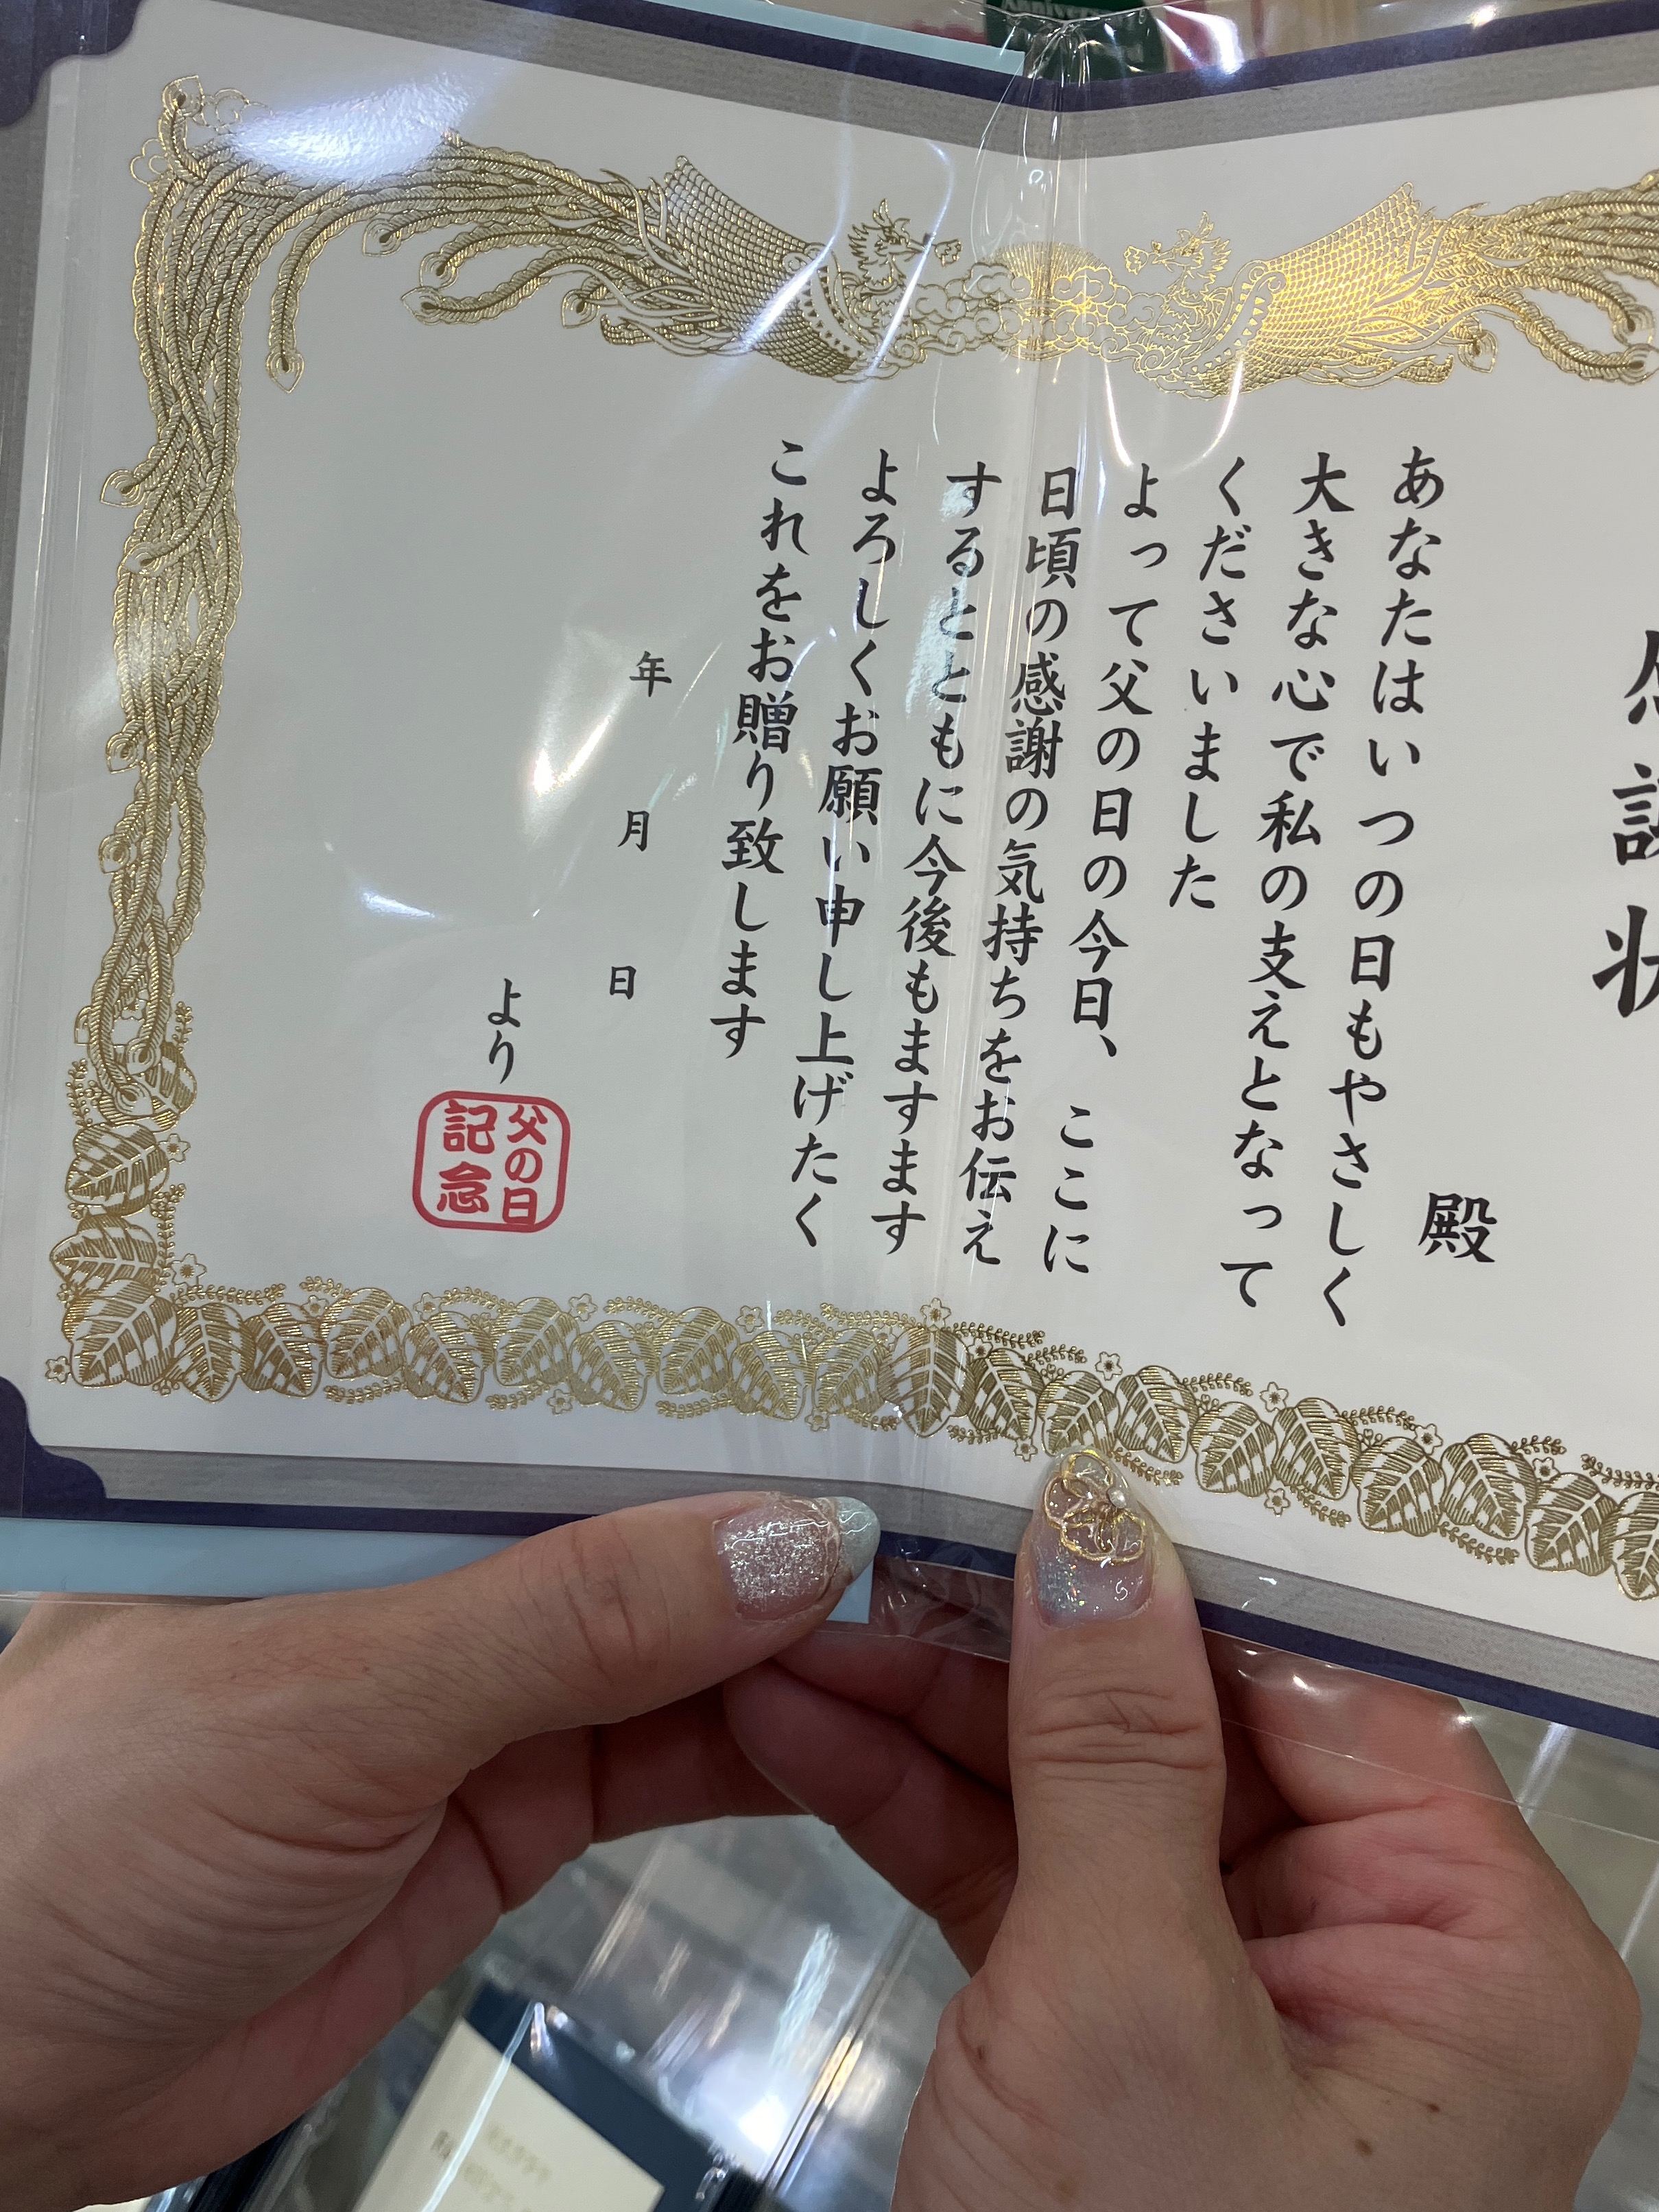 感謝状
殿
あなたはいつの日もやさしく
大きな心で私の支えとなって
くださいました
よって父の日の今日、ここに
日頃の感謝の気持ちをお伝え
するとともに今後もますます
よろしくお願い申し上げたく
これをお贈り致します
年 月 日
より
父の日
記念
Anniversary